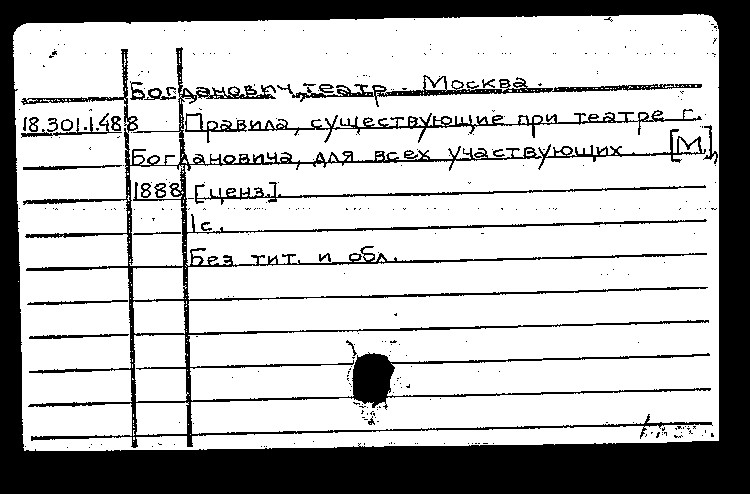 Богданович, театр. Москва.
18.301.1.488 Правила, существующие при театре г.
Богдановича, для всех участвующих. [М.],
1888 [ценз].
1 с.
Без тит. и обл.